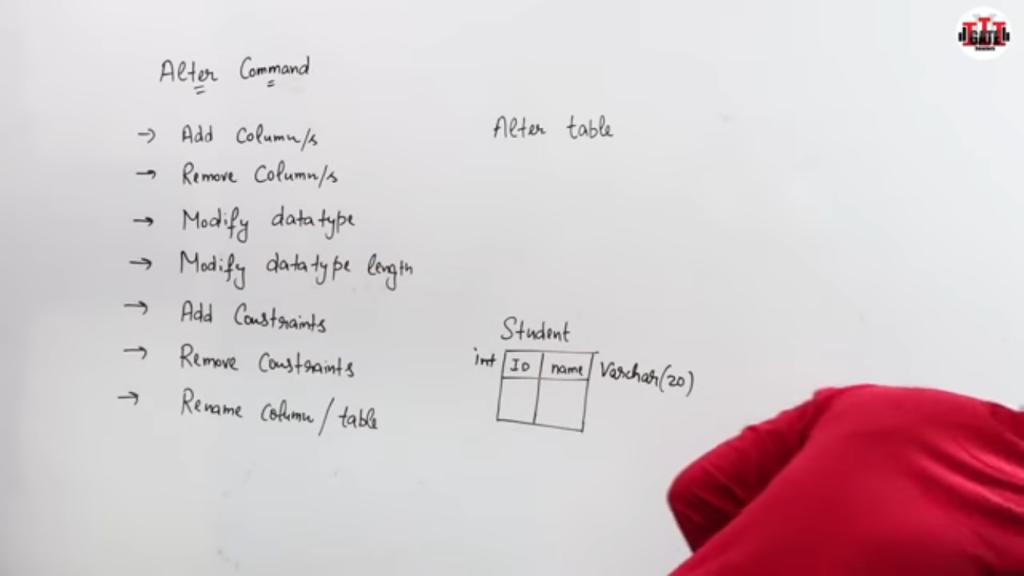 Alter Command
→ Add Column/s
→ Remove Column/s
→ Modify datatype
→ Modify datatype length
→ Add Constraints
→ Remove Constraints
→ Rename Column / table
Alter table
Student
int ID name Varchar(20)
GATE